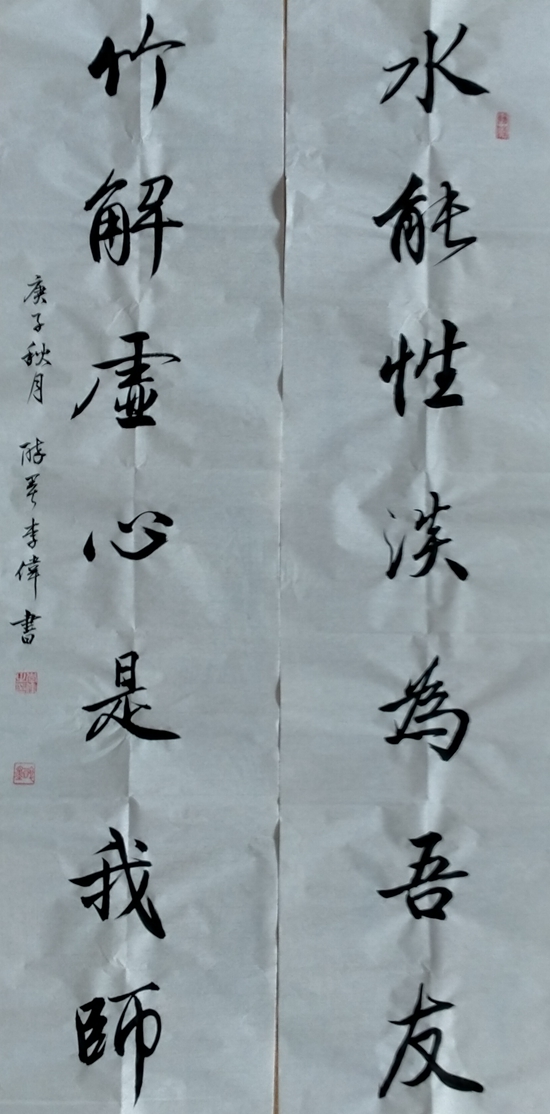 水能性淡為吾友
竹解虛心是我師
庚子秋月
李偉書